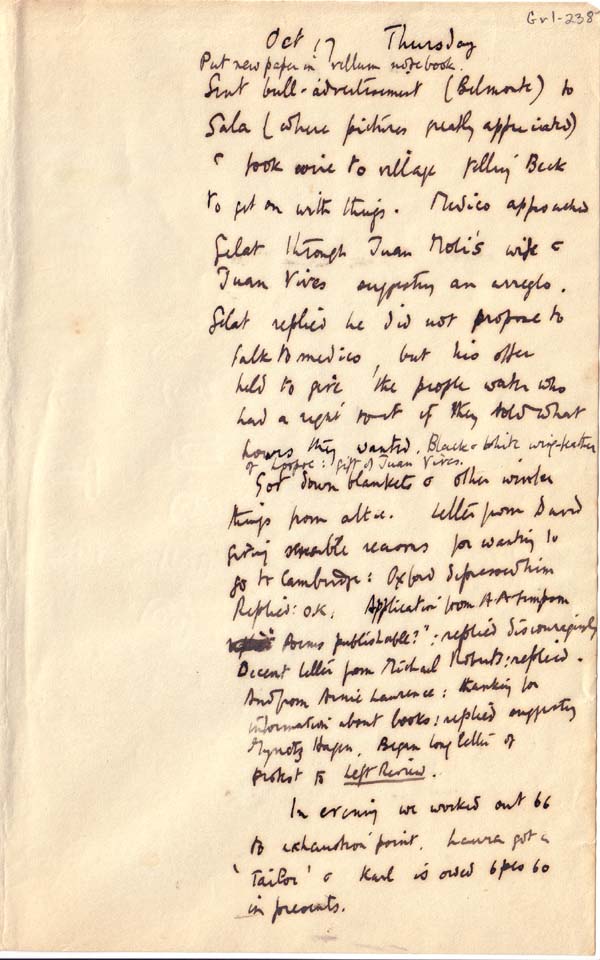 Gr1-238
Oct 17 Thursday
Put new paper in vellum notebook.
Sent bull-advertisement (Belmonte) to
Sala (where pictures greatly appreciated)
& took wire to village telling Beck
to get on with things. Medico approached
Gelat through Juan Moli's wife &
Juan Vives suggesting an arreglo.
Gelat replied he did not propose to
talk to medico, but his offer
held to give the people water who
had a right to it if they told what
hours they wanted. Black & white wing-feather
of : gift of Juan Vives.
Got down blankets & other winter
things from attic. Letter from David
giving sensible reasons for wanting to
go to Cambridge: Oxford depressed him
Replied: O.K. Application from A A Simpson
"Poems publishable?": replied discouragingly
Decent letter from Michael Roberts: replied.
And from Arnie Laurence: thanking for
information about books: replied suggesting
Hagen. Began long letter of
protest to Left Review.
In evening we worked out 66
to exhaustion point. Laura got a
'Tailor' & Karl is owed 6 pes 60
in presents.